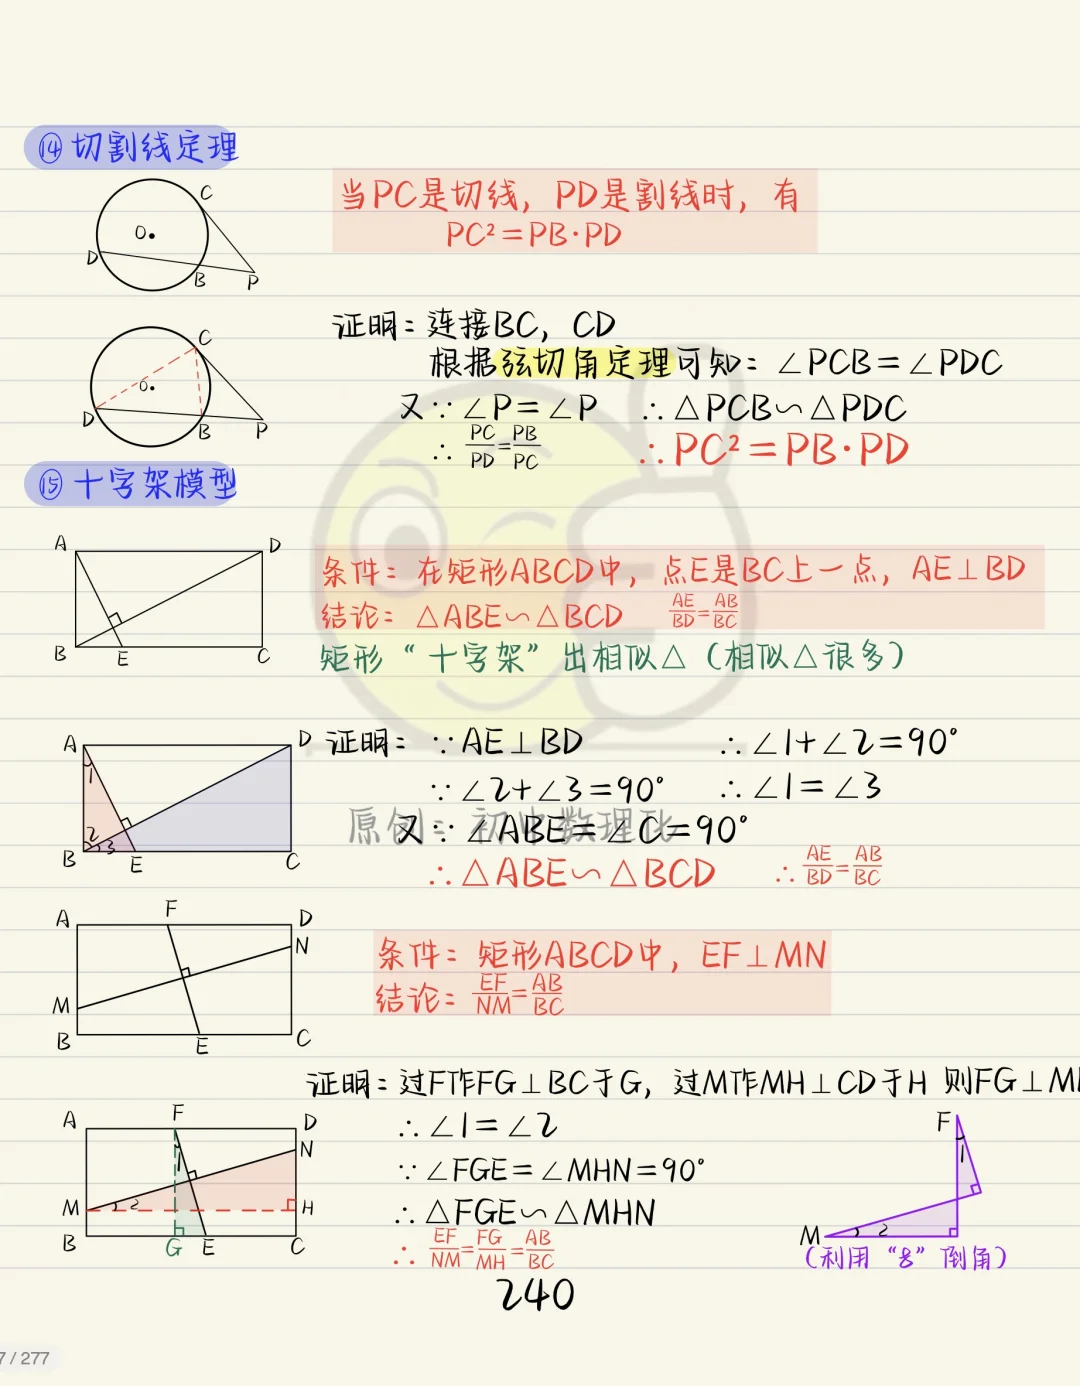 ⑭切割线定理
C
O
D
B
P
当PC是切线，PD是割线时，有
PC²=PB·PD
C
O
D
B
P
证明：连接BC，CD
根据弦切角定理可知：∠PCB=∠PDC
又∵∠P=∠P ∴△PCB∽△PDC
∴PC/PD=PB/PC ∴PC²=PB·PD
⑮十字架模型
A
D
B
E
C
条件：在矩形ABCD中，点E是BC上一点，AE⊥BD
结论：△ABE∽△BCD AE/BD=AB/BC
矩形“十字架”出相似△（相似△很多）
A
D
1
2
3
B
E
C
证明：∵AE⊥BD ∴∠1+∠2=90°
∵∠2+∠3=90° ∴∠1=∠3
原创：初中数理化
又∵∠ABE=∠C=90°
∴△ABE∽△BCD ∴AE/BD=AB/BC
A
F
D
N
M
B
E
C
条件：矩形ABCD中，EF⊥MN
结论：EF/NM=AB/BC
证明：过F作FG⊥BC于G，过M作MH⊥CD于H 则FG⊥M
A
F
D
N
1
M
2
H
B
G
E
C
∴∠1=∠2
∵∠FGE=∠MHN=90°
∴△FGE∽△MHN
∴EF/NM=FG/MH=AB/BC
F
1
M
2
（利用“8”倒角）
240
7/277